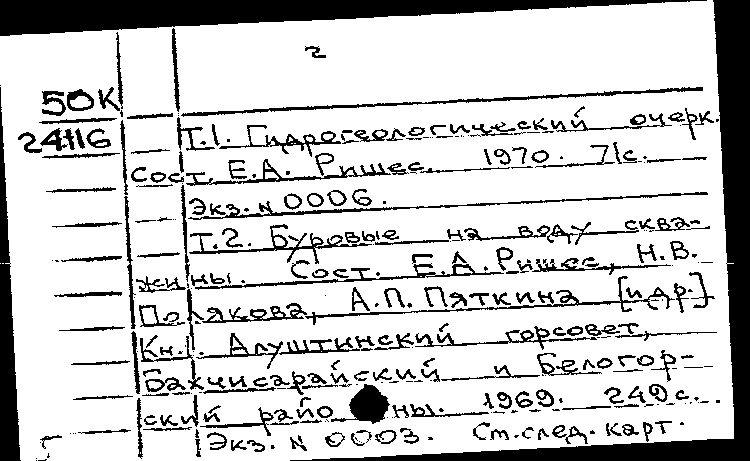 2
50К
24116
Т.1. Гидрогеологический очерк.
Сост. Е.А. Ришес. 1970. 71с.
Экз. N 0006.
Т.2. Буровые на воду сква-
жины. Сост. Е.А. Ришес, Н.В.
Полякова, А.П. Пяткина [и др.]
Кн.1. Алуштинский горсовет,
Бахчисарайский и Белогор-
ский районы. 1969. 249с.
Экз. N 0003. См. след. карт.